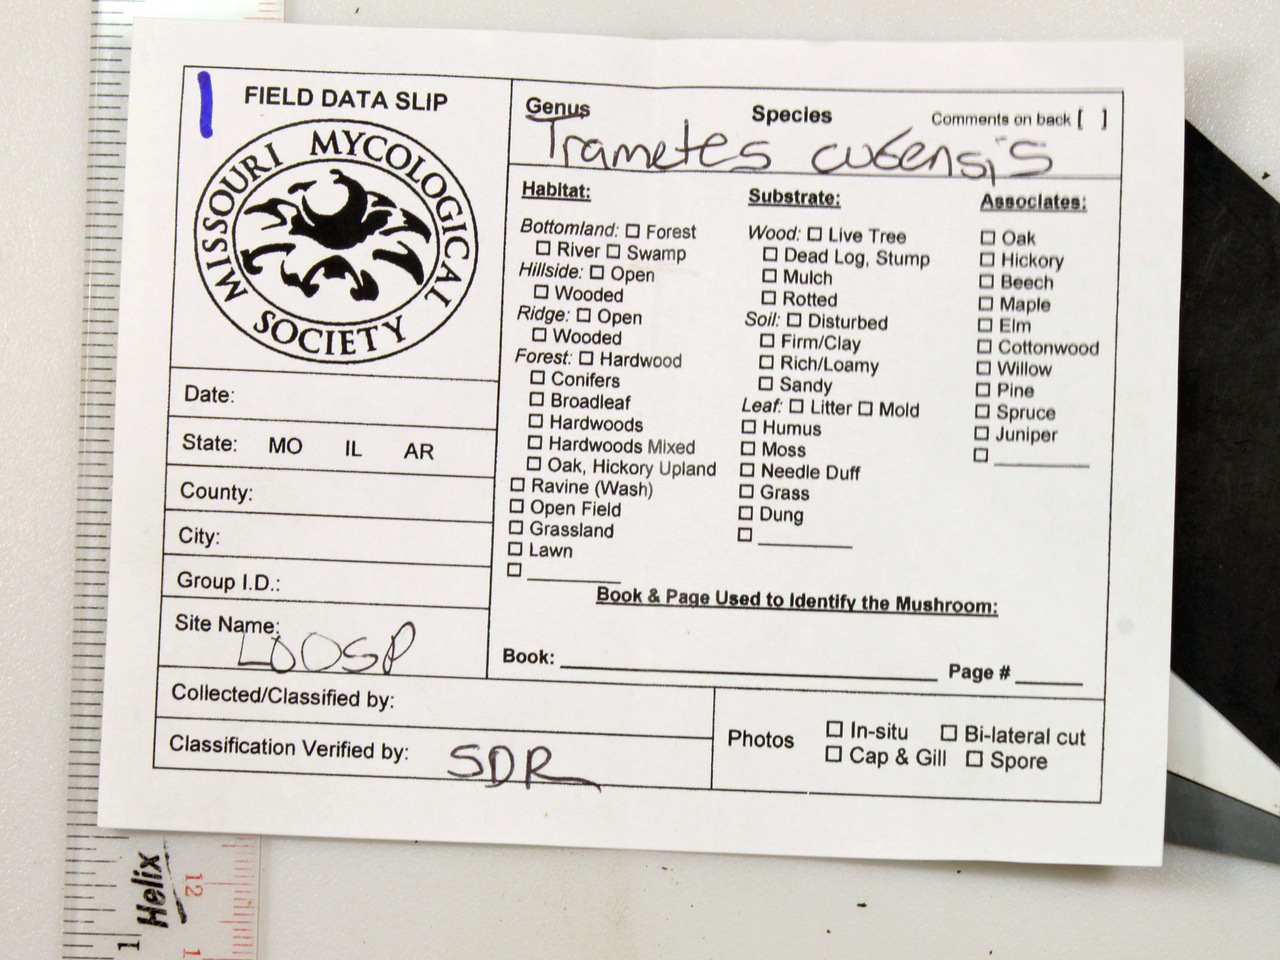 FIELD DATA SLIP
MISSOURI MYCOLOGICAL SOCIETY
Date:
State: MO IL AR
County:
City:
Group I.D.:
Site Name: LOOSP
Collected/Classified by:
Classification Verified by: SDR
Genus Species Comments on back [ ]
Trametes cubensis
Habitat:
Bottomland: ☐ Forest
☐ River ☐ Swamp
Hillside: ☐ Open
☐ Wooded
Ridge: ☐ Open
☐ Wooded
Forest: ☐ Hardwood
☐ Conifers
☐ Broadleaf
☐ Hardwoods
☐ Hardwoods Mixed
☐ Oak, Hickory Upland
☐ Ravine (Wash)
☐ Open Field
☐ Grassland
☐ Lawn
☐ ________
Substrate:
Wood: ☐ Live Tree
☐ Dead Log, Stump
☐ Mulch
☐ Rotted
Soil: ☐ Disturbed
☐ Firm/Clay
☐ Rich/Loamy
☐ Sandy
Leaf: ☐ Litter ☐ Mold
☐ Humus
☐ Moss
☐ Needle Duff
☐ Grass
☐ Dung
☐ ________
Associates:
☐ Oak
☐ Hickory
☐ Beech
☐ Maple
☐ Elm
☐ Cottonwood
☐ Willow
☐ Pine
☐ Spruce
☐ Juniper
☐ ________
Book & Page Used to Identify the Mushroom:
Book: ________ Page # ____
Photos ☐ In-situ ☐ Bi-lateral cut
☐ Cap & Gill ☐ Spore
Helix
12
1
1